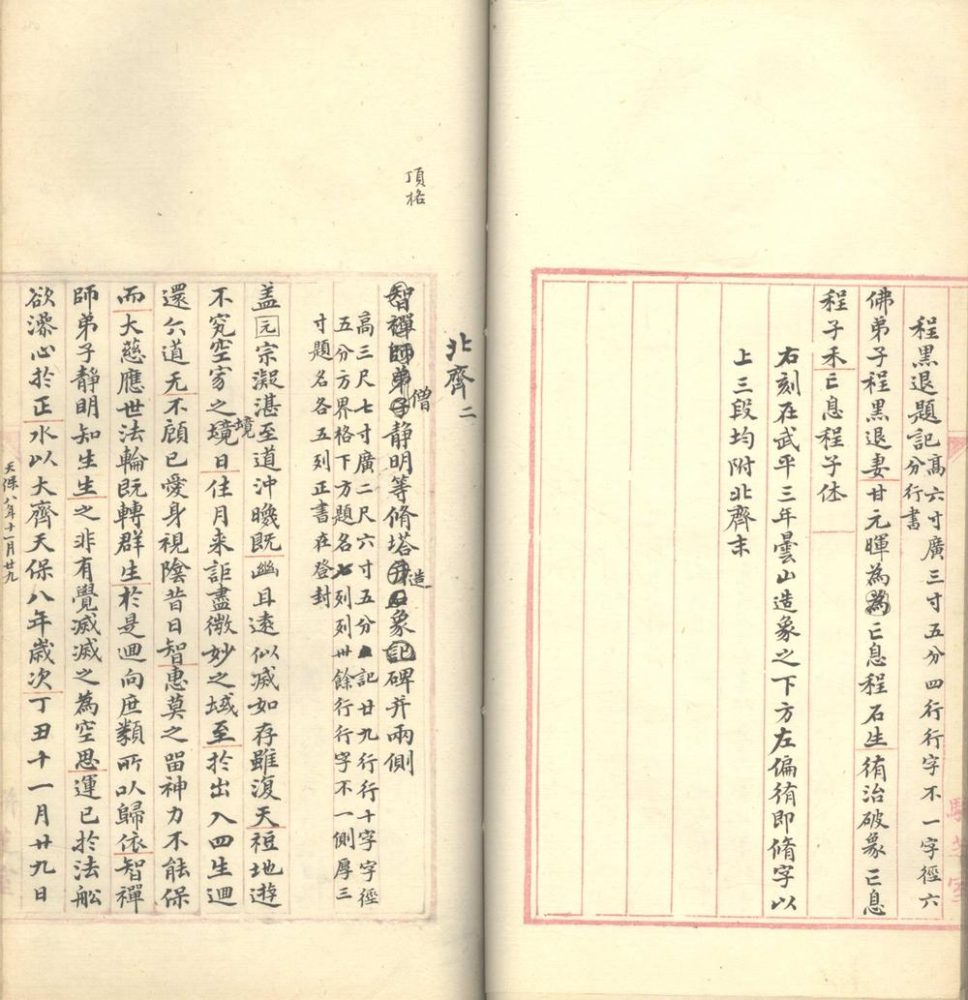 程黑退題記高六寸廣三寸五分四行行字不一字徑六
分行書
佛弟子程黑退妻甘元暉為為亡息程石生䏍治破象亡息
程子禾亡息程子休
右刻在武平三年曇山造象之下方左偏䏍即脩字以
上三段均附北齊末
頂格
北齊二
智禪師弟子僧靜明等脩塔并石造象記碑并兩側
高三尺七寸廣二尺六寸五分記廿九行行十字字徑
五分方界格下方題名七列列卅餘行行字不一側厚三
寸題名各五列正書在登封
盖元宗凝湛至道沖曒既幽且遠似滅如存雖復天祖地遊
不窮空家之境境日住月来詎盡微妙之域至扵出入四生迴
還六道无不顧已愛身視陰昔日智惠莫之留神力不能保
而大慈應世法輪既轉群生扵是迴向庶類所以歸依智禪
師弟子靜明知生生之非有覺滅滅之為空思運已扵法舩
欲㵒心扵正水以大齊天保八年歲次丁丑十一月廿九日
天保八年十一月廿九